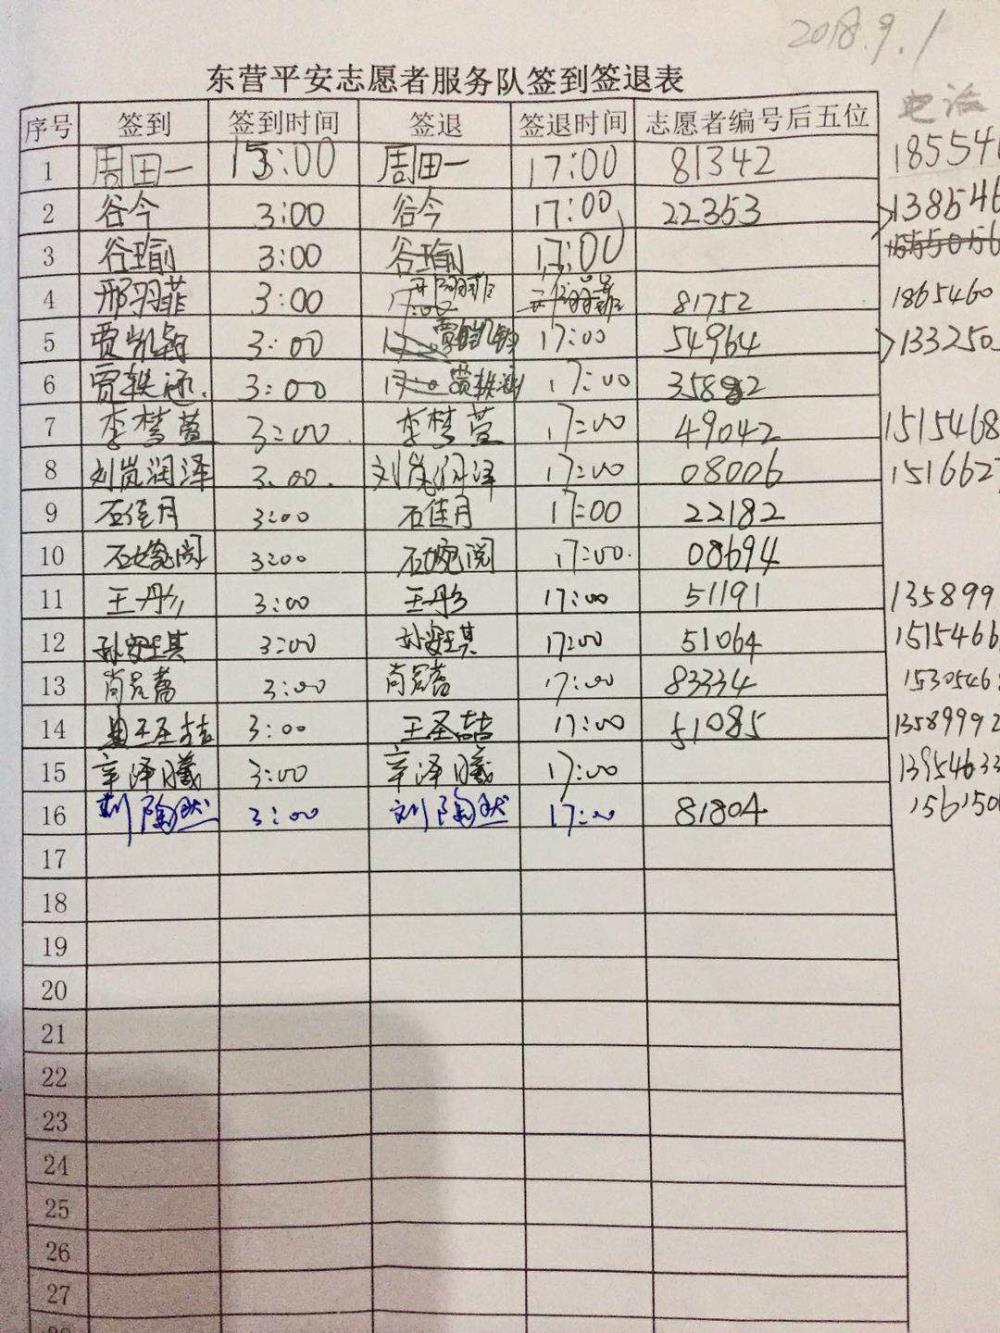 2018.9.1
东营平安志愿者服务队签到签退表
序号 签到 签到时间 签退 签退时间 志愿者编号后五位 电话
1 周田一 15:00 周田一 17:00 81342 185541
2 谷今 3:00 谷今 17:00 22353 138546
3 谷瑜 3:00 谷瑜 17:00
4 邢羽菲 3:00 17:00 邢羽菲 81752 1865460
5 贾凯 3:00 17:00 54964 133250
6 贾轶涵 3:00 贾轶涵 17:00 35892
7 李梦萱 3:00 李梦萱 17:00 49042 1515468
8 刘岚润泽 3:00 刘岚润泽 17:00 08006 1516627
9 石佳月 3:00 石佳月 17:00 22182
10 石婉阅 3:00 石婉阅 17:00 08694
11 王彤 3:00 王彤 17:00 51191 135899
12 孙安琪 3:00 孙安琪 17:00 51064 1515466
13 3:00 17:00 83334 1530546
14 王圣喆 3:00 王圣喆 17:00 51085 13589992
15 辛泽曦 3:00 辛泽曦 17:00 13954633
16 刘陶然 3:00 刘陶然 17:00 81804 156150
17
18
19
20
21
22
23
24
25
26
27